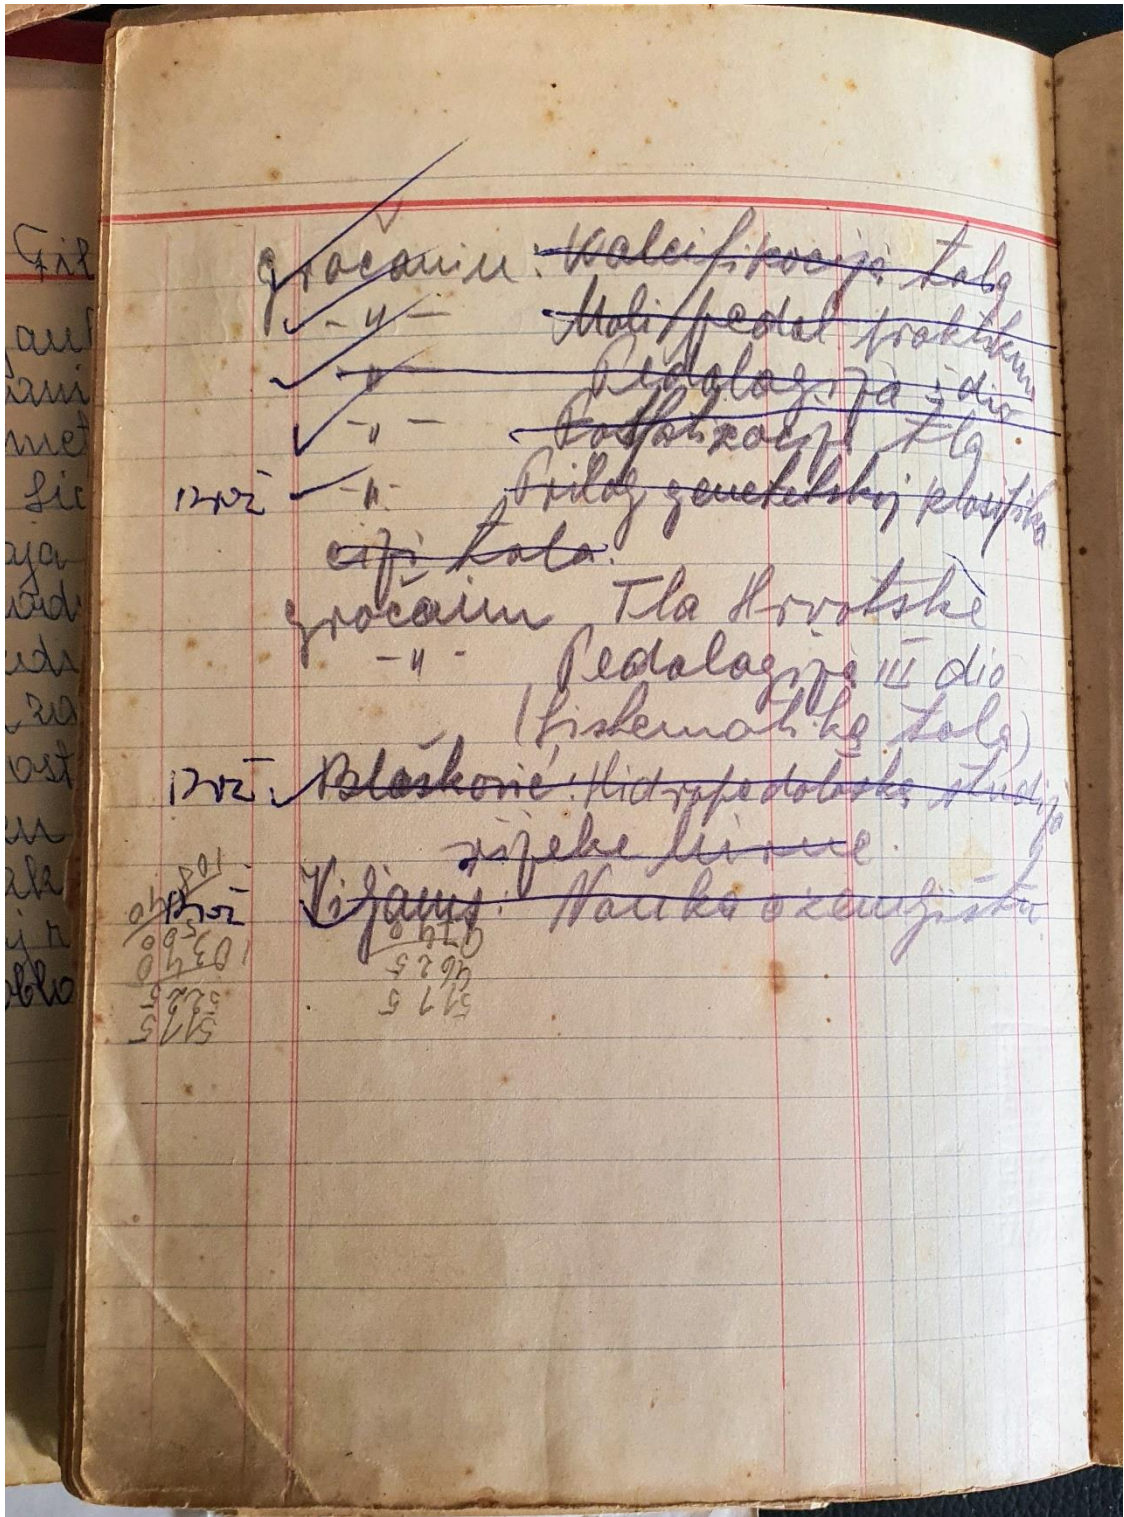 Gračanin: Kalcifikacija tala
-"- Mali pedol praktikum
-"- Pedologija i dio
-"- Fosfatizacija tla
Izvž -"- Prilog genetskoj klasifika
ciji tala.
Gračanin Tla Hrvatske
-"- Pedologija III dio
(Sistematika tala)
Izvž. Blašković: Hidropedološka studija
rijeke Mirne.
Izvž Viljams: Nauka o zemljištu.
5115
4625
9740
5115
5225
10340